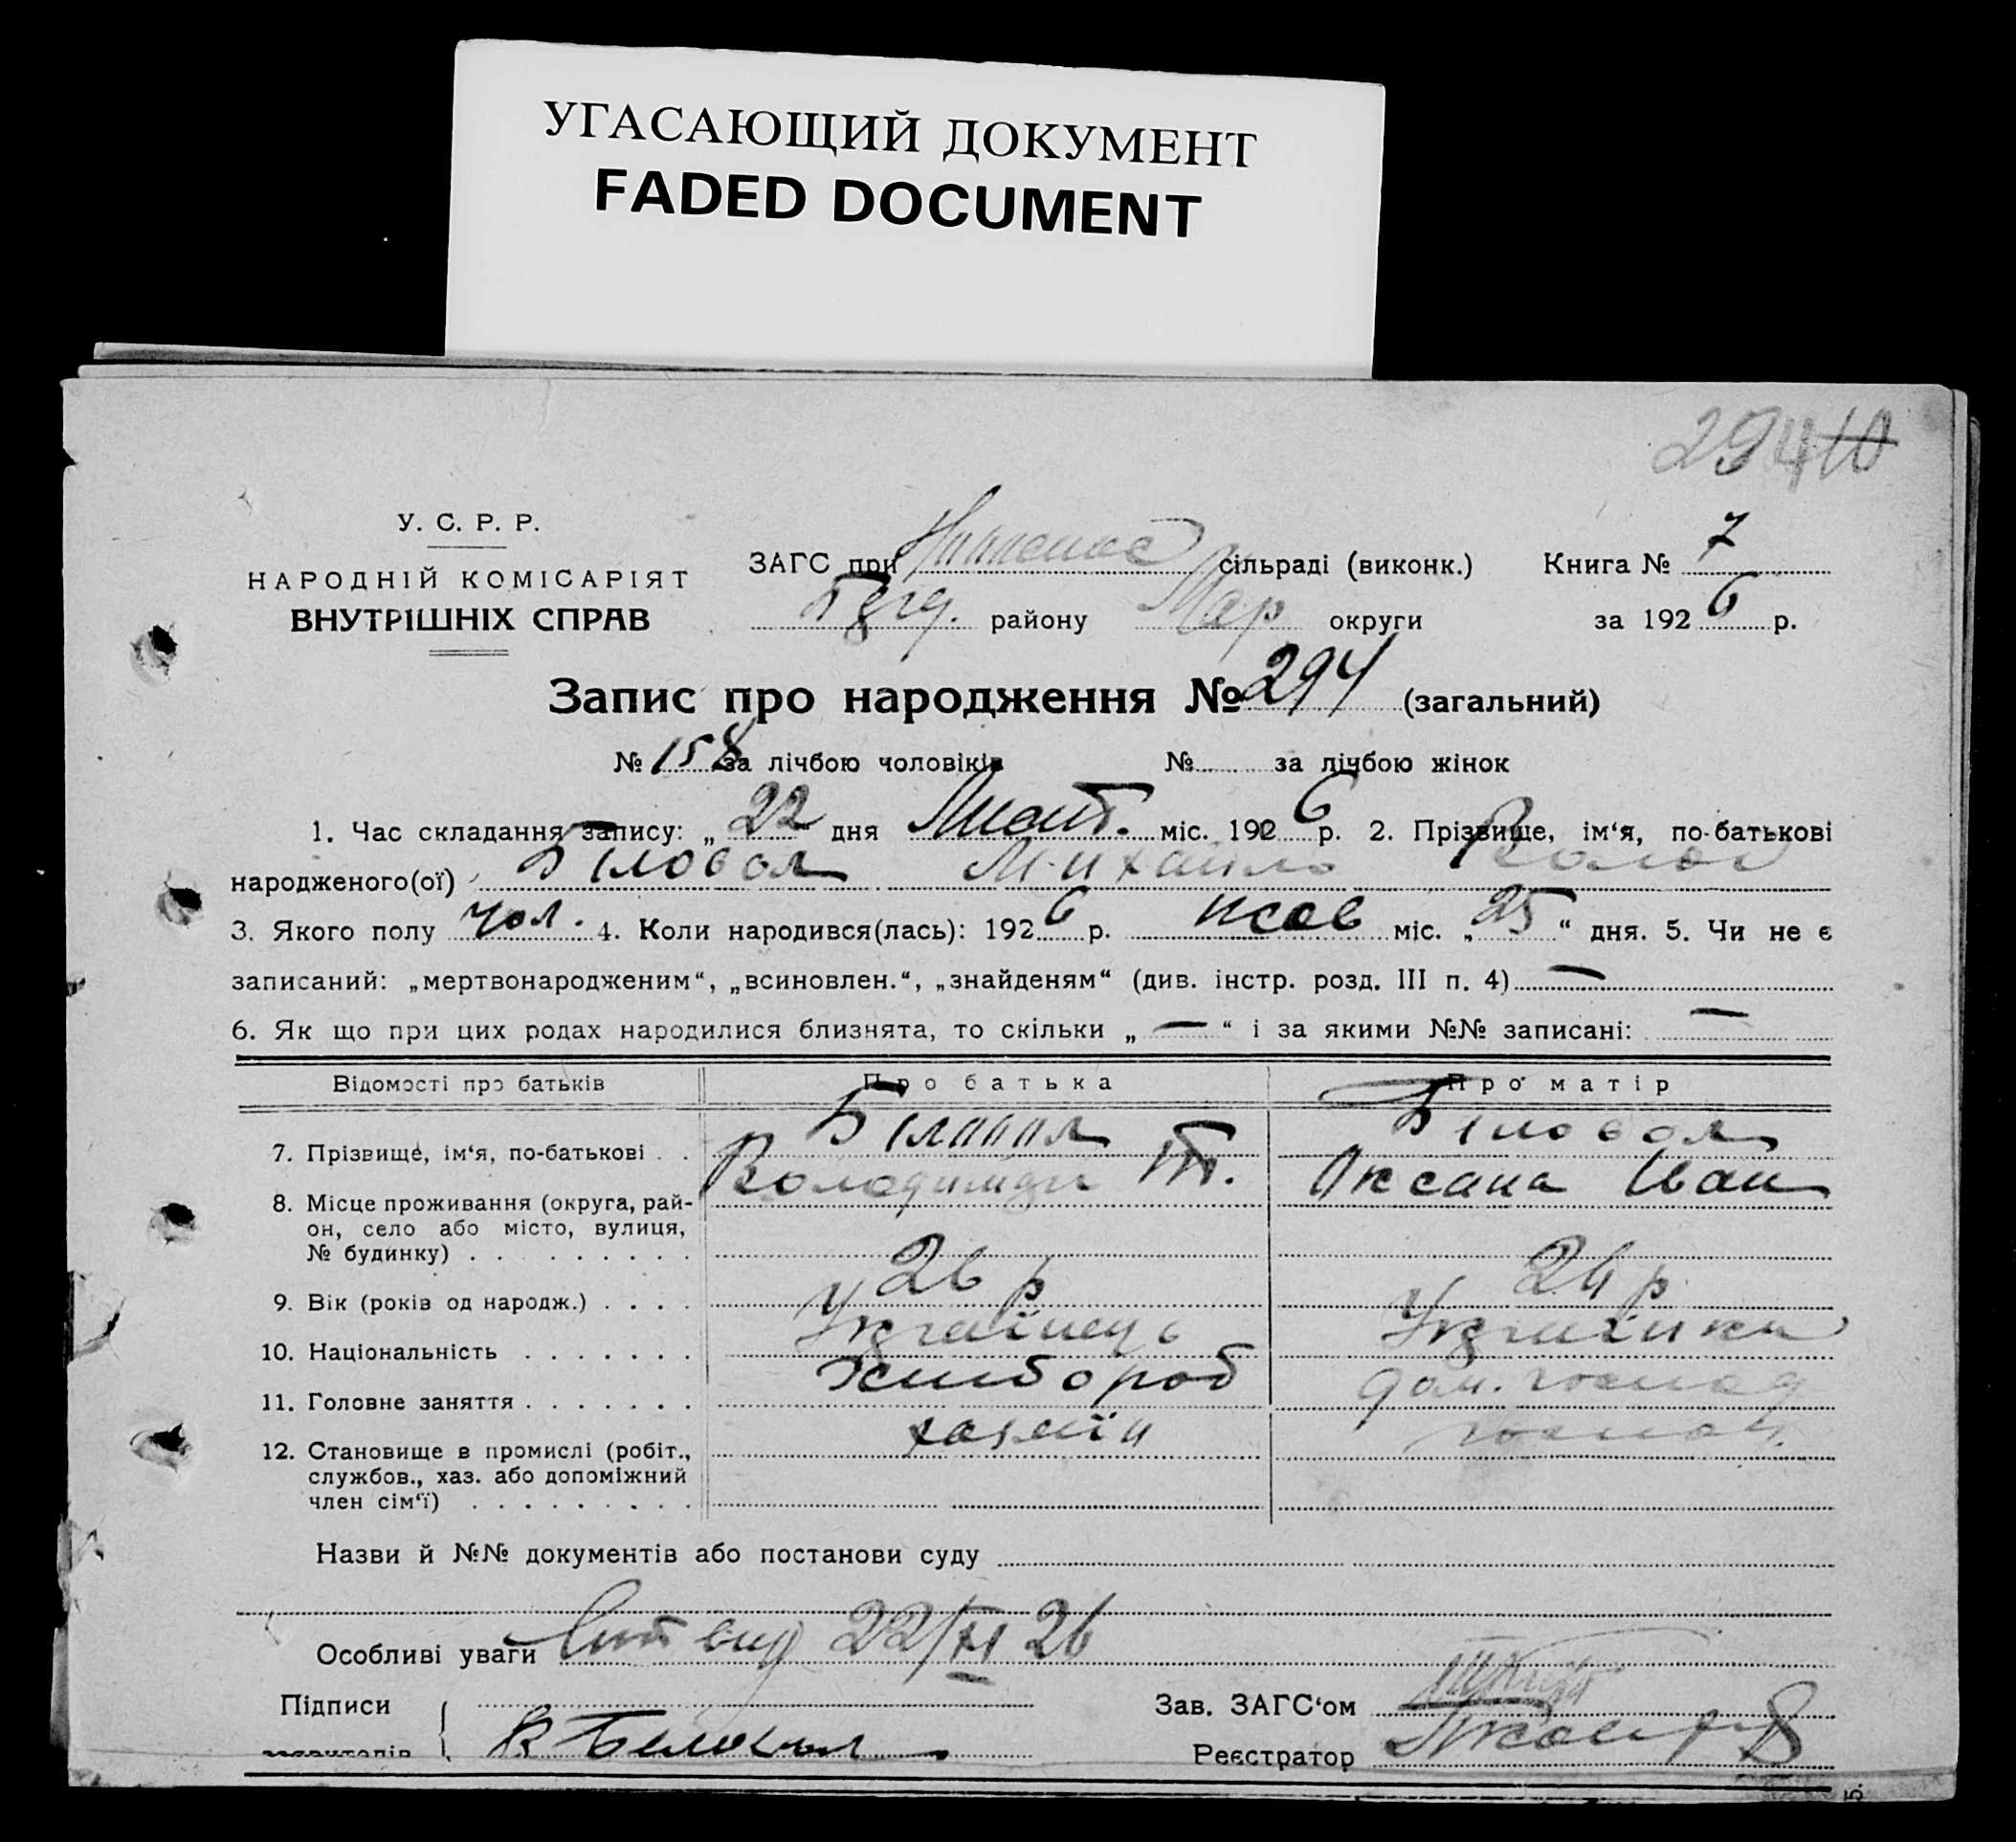 УГАСАЮЩИЙ ДОКУМЕНТ
FADED DOCUMENT
294 10
У. С. Р. Р.
НАРОДНІЙ КОМІСАРІЯТ
ВНУТРІШНІХ СПРАВ
ЗАГС при сільраді (виконк.) Книга № 7
району Мар округи за 1926 р.
Запис про народження № 294 (загальний)
№ 158 за лічбою чоловіків № за лічбою жінок
1. Час складання запису: „ 22 дня Лист. міс. 1926 р. 2. Прізвище, ім‘я, по-батькові
народженого(ої) Біловол Михайло Волод
3. Якого полу чол. 4. Коли народився(лась): 1926 р. жов міс. „ 25 “ дня. 5. Чи не є
записаний: „мертвонародженим“, „всиновлен.“, „знайденям“ (див. інстр. розд. III п. 4) —
6. Як що при цих родах народилися близнята, то скільки „ — “ і за якими №№ записані: —
Відомості про батьків Про батька Про матір
Біловол Біловол
7. Прізвище, ім‘я, по-батькові . .
Володимир Оксана Иван
8. Місце проживання (округа, рай-
он, село або місто, вулиця,
№ будинку) . . . . . . . . .
26 р 24 р.
9. Вік (років од народж.) . . . .
Українець Українка
10. Національність . . . . . . .
Хлібороб дом. господ
11. Головне заняття . . . . . . .
хазяїн господ.
12. Становище в промислі (робіт.,
службов., хаз. або допоміжний
член сім‘ї) . . . . . . . . .
Назви й №№ документів або постанови суду
Особливі уваги 22/XI 26
Підписи Зав. ЗАГС‘ом
В Беловол Реєстратор